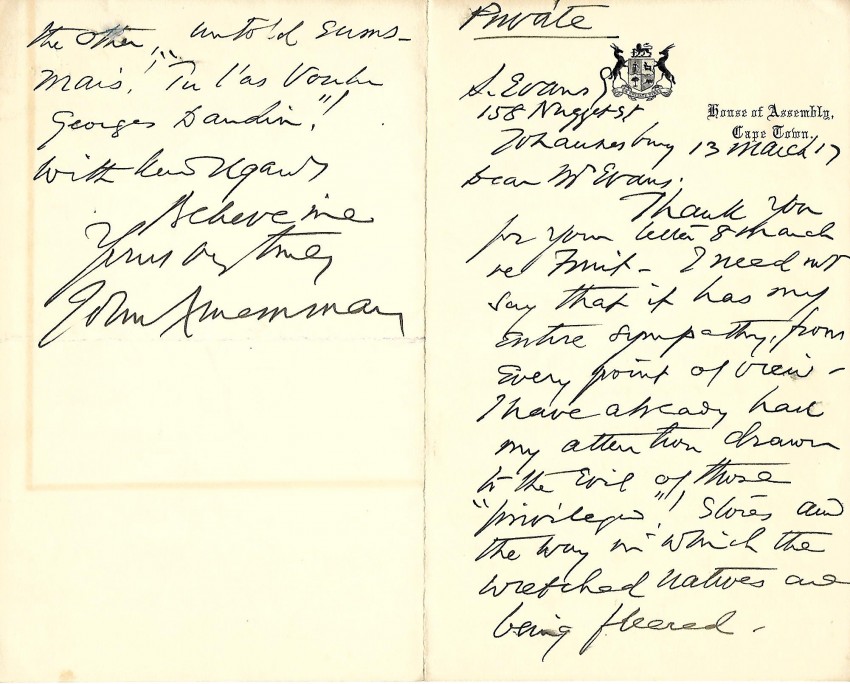 Private
S. Evans
158 Nugget St
House of Assembly,
Cape Town.
Johannesburg 13 March 17
Dear Mr Evans.
Thank you
for your letter 8 March
re - I need not
say that it has my
entire sympathy, from
every point of view -
I have already had
my attention drawn
to the evil of those
"privileged"! Stores and
the way in which the
wretched natives are
being fleeced -
the other, untold sums -
mais! "Tu l'as Voulu
Georges Dandin"!
With kind regards
Believe me
Yours very truly
John X Merriman